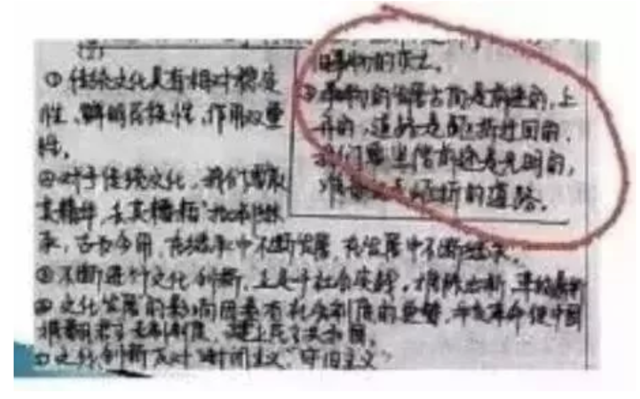 ①传统文化具有相对稳定
性、鲜明民族性,作用双重
性。
②对于传统文化,我们要取
其精华,去其糟粕,批判继
承,古为今用,在继承中不断发展,在发展中不断继承。
③不断进行文化创新,立足于社会实践,推陈出新,革故鼎新
④文化发展的影响因素有社会制度的更替,
推翻君主专制制度,建立民主共和国。
文化创新反对"封闭主义""守旧主义"
旧事物的灭亡。
事物的发展方向是前进的,上
升的,道路是曲折迂回的,
我们要坚信前途是光明的,
准备走曲折的道路。